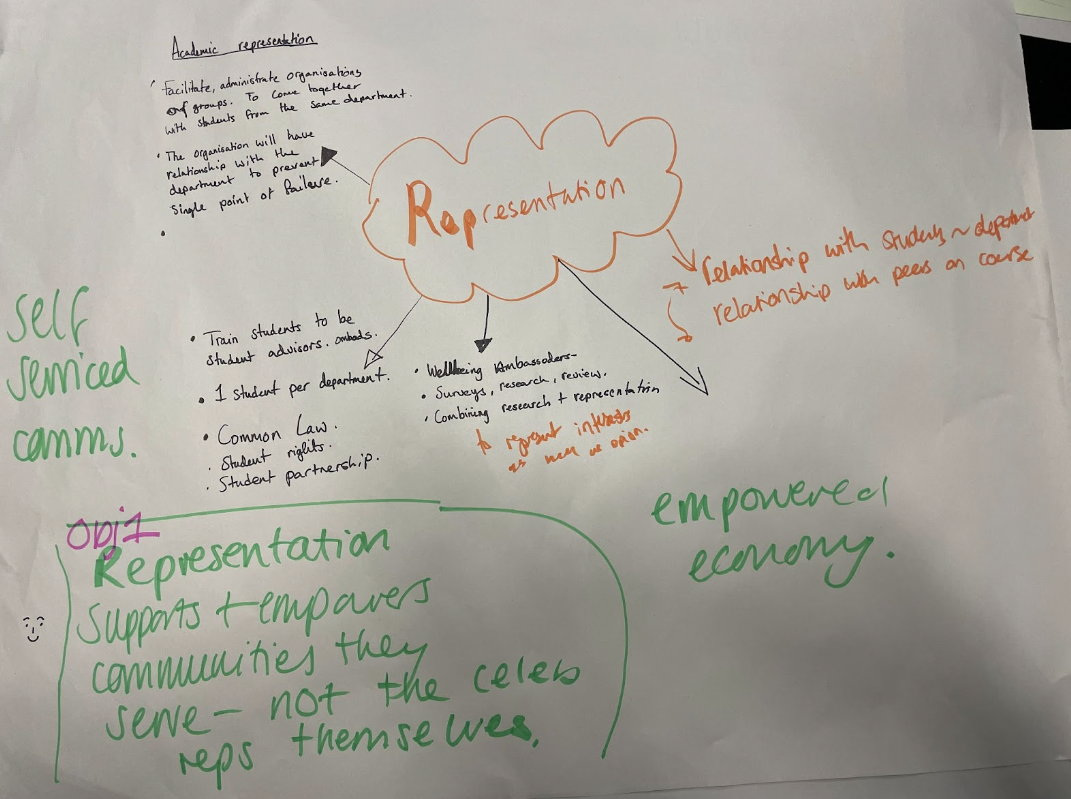 Academic representation
Facilitate, administrate organisations
of groups. To come together
with students from the same department.
The organisation will have
relationship with the
department to prevent
single point of failure.
Representation
relationship with students ~
relationship with peers on course
self
serviced
comms.
• Train students to be
student advisors. ambads.
• 1 student per department.
• Common Law.
• Student rights.
• Student partnership.
• Wellbeing Ambassoders-
• Surveys, research, review.
• Combining research + representation
to represent interests
as well as opion.
empowered
economy.
Obj1
Representation
supports + empowers
communities they
serve - not the celeb
reps themselves.